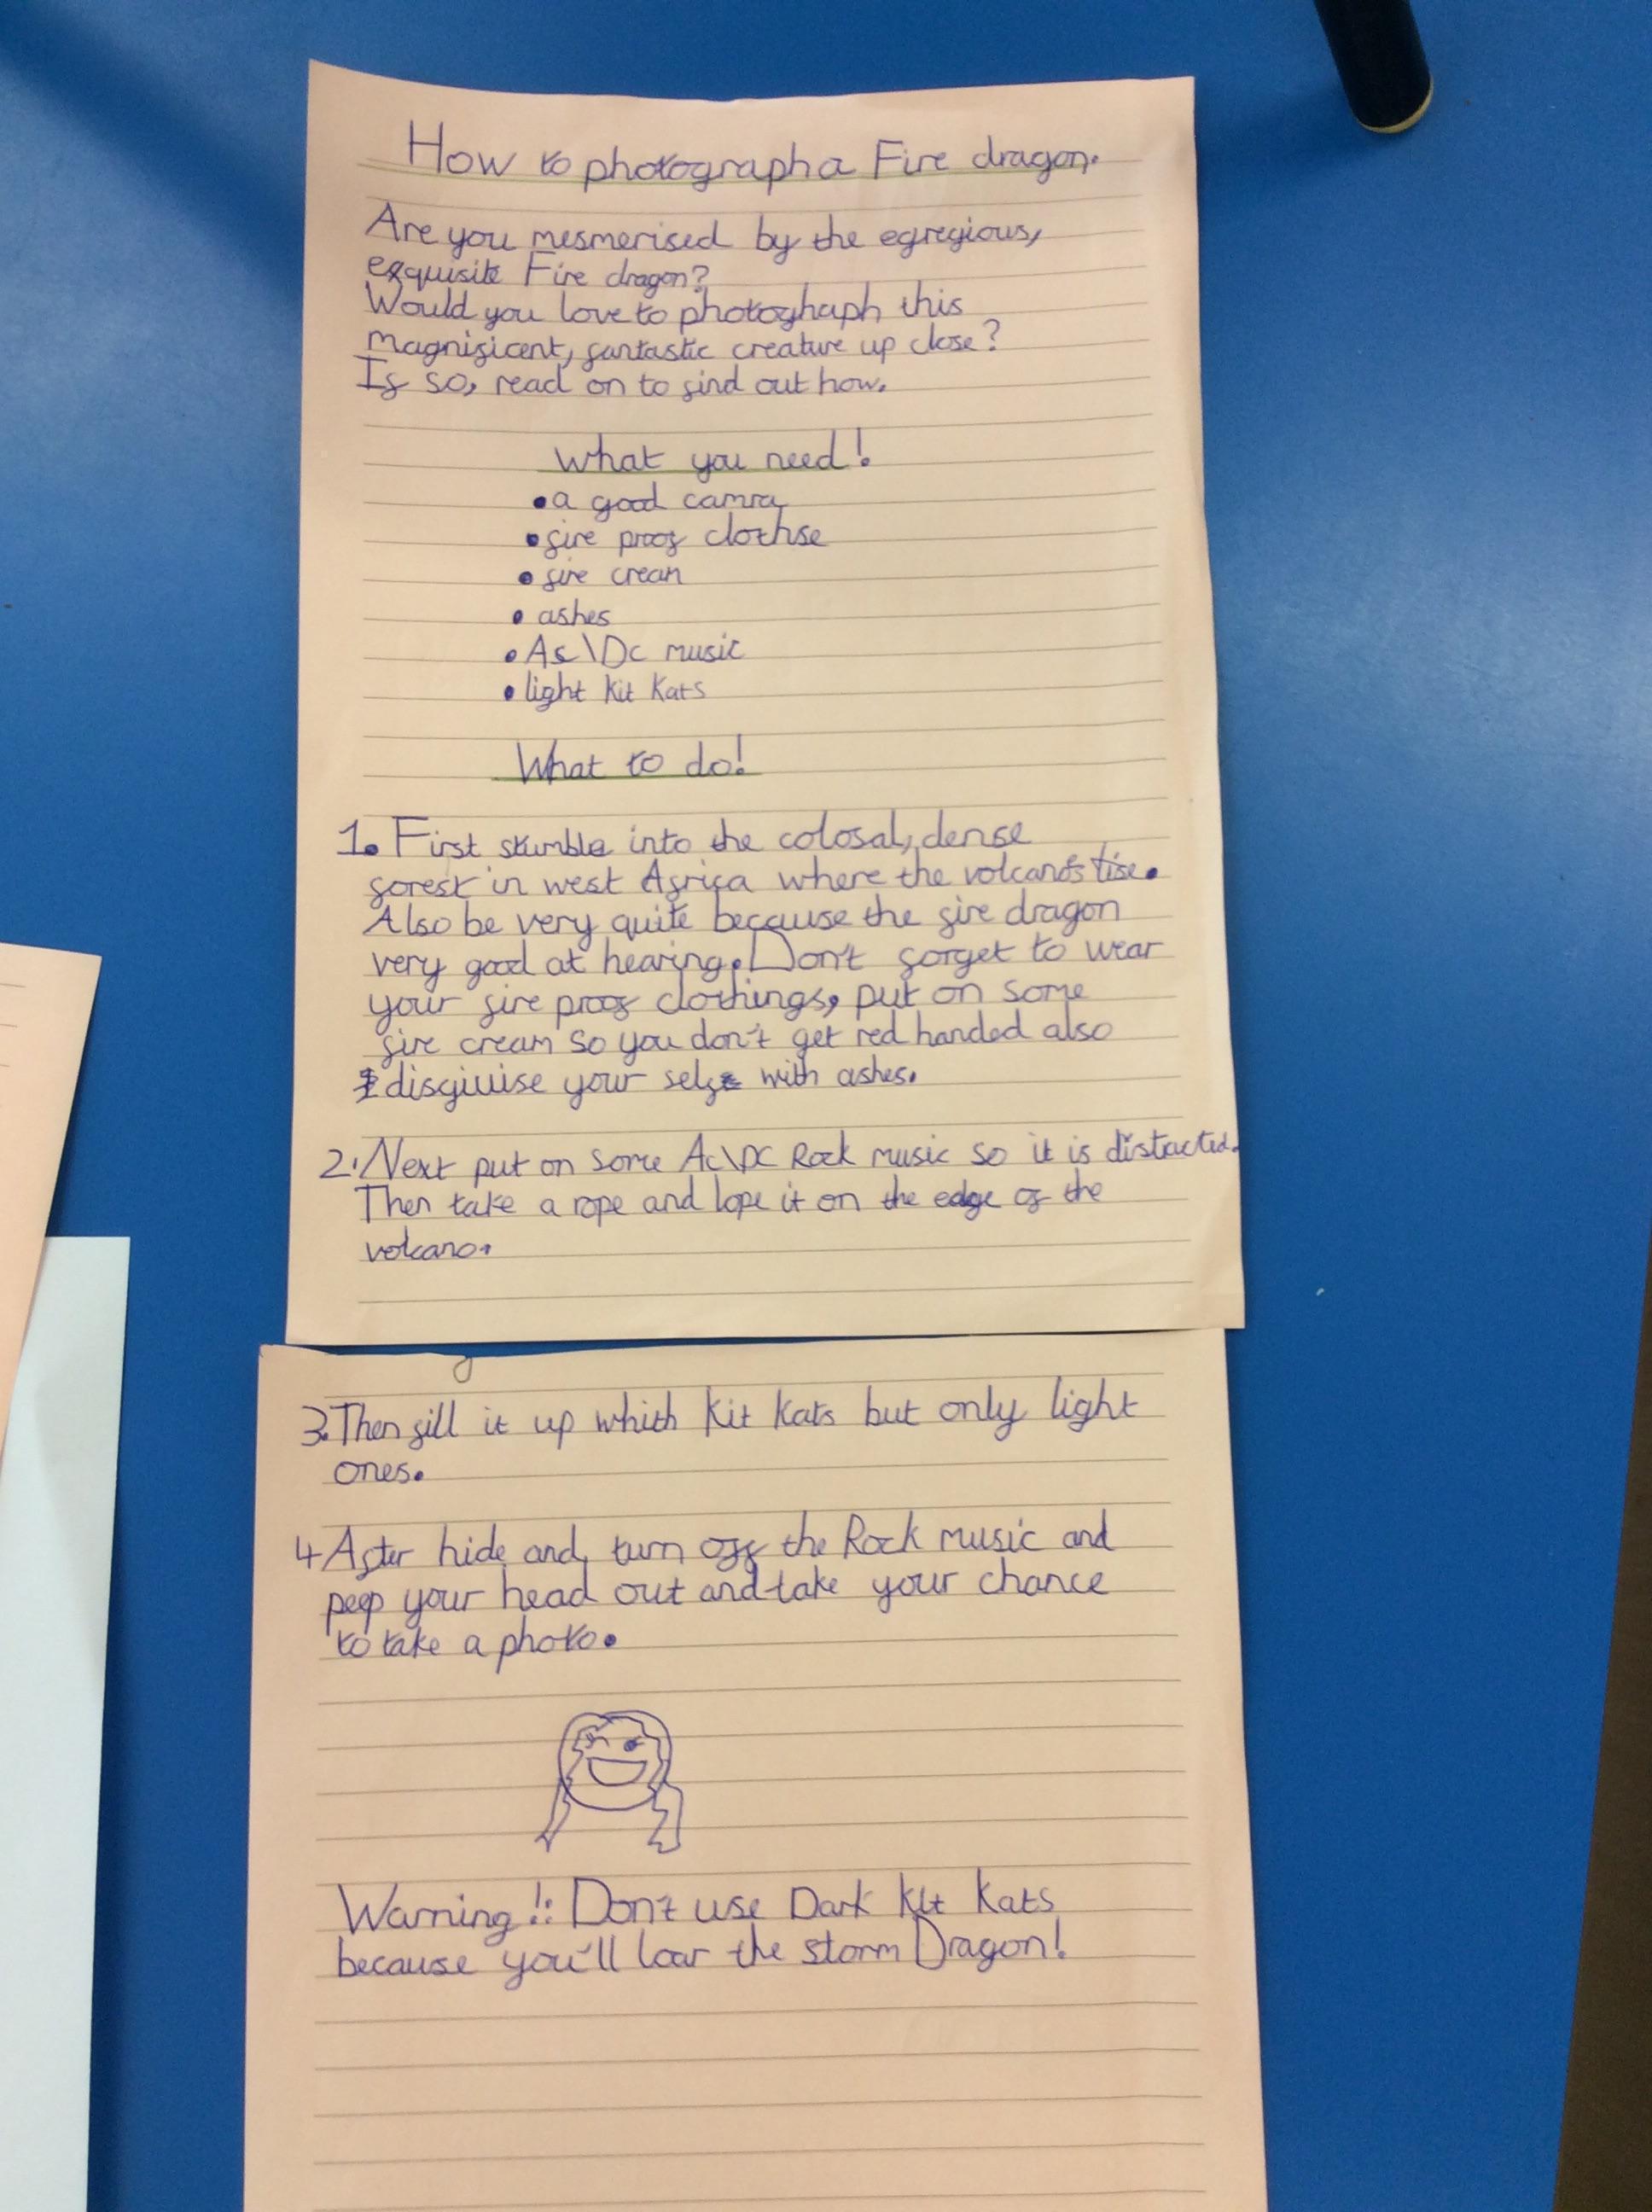 How to photograph a Fire dragon.
Are you mesmerised by the egregious,
exquisite Fire dragon?
Would you love to photoghaph this
magnificent, fantastic creature up close?
If so, read on to find out how.
What you need!
• a good camra
• fire proof clothse
• fire cream
• ashes
• Ac\Dc music
• light Kit Kats
What to do!
1. First stumble into the colosal, dense
forest in west Africa where the volcano's
Also be very quite because the fire dragon
very good at hearing. Don't forget to wear
your fire proof clothings, put on some
fire cream so you don't get red handed also
disgiuise your self with ashes.
2. Next put on some Ac\DC Rock music so it is distracted.
Then take a rope and lope it on the edge of the
volcano.
3. Then fill it up whith Kit Kats but only light
ones.
4 After hide and, turn off the Rock music and
peep your head out and take your chance
to take a photo.
Warning!: Don't use Dark Kit Kats
because you'll the storm Dragon!